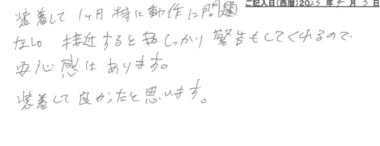 ご記入日(西暦)2023年 月 3日
装着して1ヶ月特に動作に問題
なし 接近すると しっかり警告もしてくれるので
安心感はあります。
装着して良かったと思います。